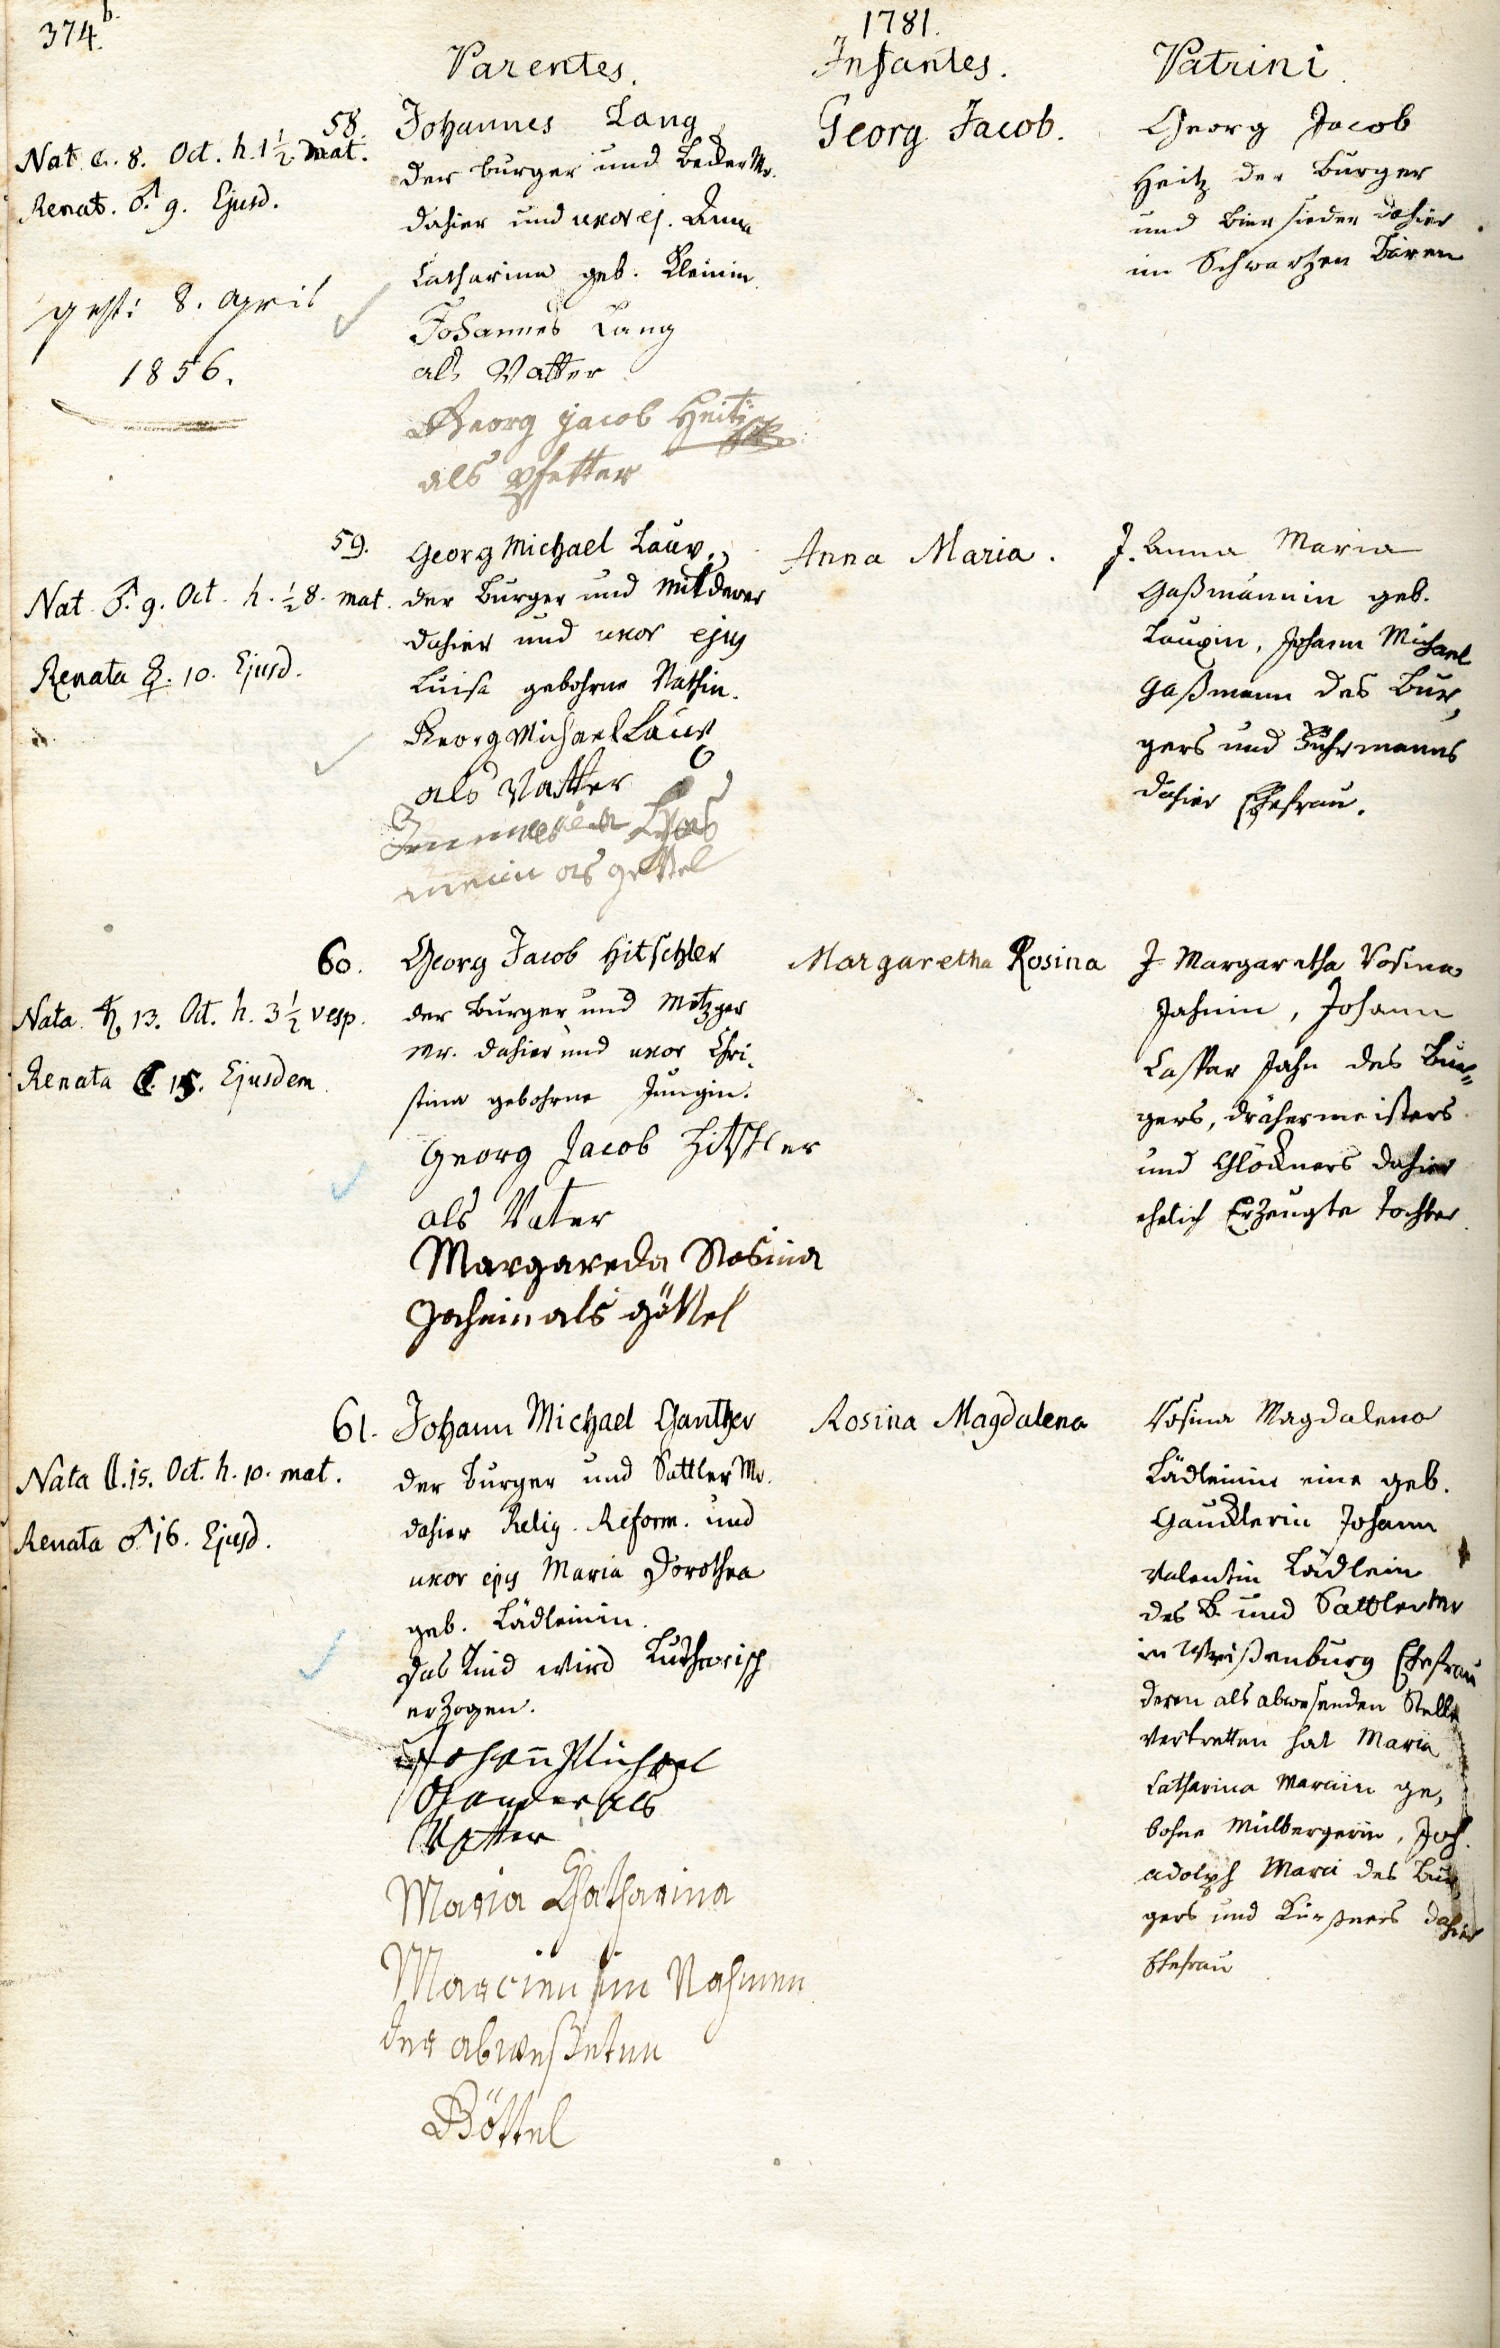 374.b.
1781.
Parentes.
Infantes.
Patrini.
58.
Nat. ☾. 8. Oct. h. 1 1/2 mat.
Renat. ♂. 9. Ejusd.
gest: 8. April
1856.
Johannes Lang
der burger und Becker Mr.
dahier und uxor ej. Anna
Catharina geb. Kleinin.
Johannes Lang
als Vatter
Georg jacob Heitz
als Pfetter
Georg Jacob.
Georg Jacob
Heitz der Burger
und Biersieder dahier
im Schwartzen Bären
59.
Nat. ♂. 9. Oct. h. 1/2 8. mat.
Renata ☿. 10. Ejusd.
Georg Michael Laux,
der Burger und
dahier und uxor ejus
Luisa gebohrne Nathin.
Georg Michael Laux
als Vatter
als gettel
Anna Maria.
J. Anna Maria
Gaßmännin geb.
Lauxin, Johann Michael
Gaßmann des Bur,
gers und Fuhrmanns
dahier Ehefrau.
60.
Nata. ♄. 13. Oct. h. 3 1/2 vesp.
Renata ☾. 15. Ejusdem
Georg Jacob Hitschler
der Burger und Metzger
Mr. dahier und uxor Chri,
stina gebohrne Jungin.
Georg Jacob Hitschler
als Vater
Margareda Rosina
Jahnin als göttel
Margaretha Rosina
J. Margaretha Rosina
Jahnin, Johann
Caspar Jahn des Bur=
gers, Drähermeisters
und Glöckners dahier
ehelich Erzeugte Tochter.
61.
Nata ☾. 15. Oct. h. 10. mat.
Renata ♂ 16. Ejusd.
Johann Michael Ganther
der Burger und Sattler Mr.
dahier Relig. Reform. und
uxor ejus Maria Dorothea
geb. Lädleinin.
das Kind wird Lutherisch
erzogen.
Johann Michael
Gander als
Vatter
Maria Chatharina
Marcien im Nahmen
der abweßeten
Göttel
Rosina Magdalena
Rosina Magdalena
Lädleinin eine geb.
Gaucklerin Johann
Valentin Lädlein
des B. und Sattler Mr
in Weißenburg Ehefrau
deren als abwesenden Stelle
vertretten hat Maria
Catharina Marciin ge,
bohne Mülbergerin, Joh.
Adolph Marci des Bur,
gers und Kürßners dahier
Ehefrau